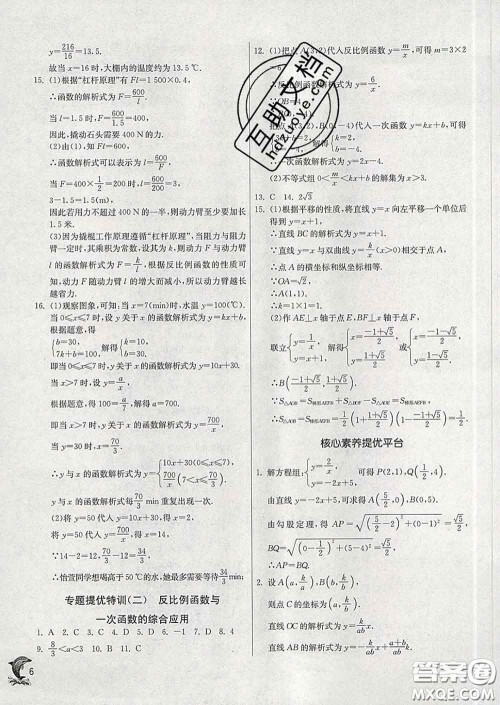 y=216/16=13.5.
故当x=16时,大棚内的温度约为13.5 ℃.
15. (1)根据“杠杆原理”有Fl=1 500×0.4,
∴函数的解析式为F=600/l.
当l=1.5时,F=600/1.5=400,
因此,撬动石头需要400 N的力.
(2)由(1),知Fl=600,
∴函数解析式可以表示为l=600/F.
当F=400×1/2=200时,l=600/200=3,
3-1.5=1.5(m),
因此若用力不超过400 N的一半,则动力臂至少要加长
1.5米.
(3)因为撬棍工作原理遵循“杠杆原理”,当阻力与阻力
臂一定时,其乘积为常数,设为k,则动力F与动力臂
l的函数解析式为F=k/l,根据反比例函数的性质可
知,动力F随动力臂l的增大而减小,所以动力臂越长
越省力.
16. (1)观察图象,可知,当x=7(min)时,水温y=100(℃)
当0≤x≤7时,设y关于x的函数解析式为y=kx+b,
根据题意,得
{b=30, 7k+b=100, 解得{k=10, b=30.
∴当0≤x≤7时,y关于x的函数解析式为y=10x+30.
当x>7时,设y=a/x,
根据题意,得100=a/7,解得a=700,
即当x>7时,y关于x的函数解析式为y=700/x.
当y=30时,x=70/3,
∴y与x的函数解析式为y={10x+30(0≤x≤7), 700/x(7<x≤70/3).
y与x的函数解析式每70/3 min重复出现一次.
(2)将y=50代入y=10x+30,得x=2,
将y=50代入y=700/x,得x=14.
∴14-2=12,70/3-12=34/3.
∴怡萱同学想喝高于50 ℃的水,她最多需要等待34/3 min.
专题提优特训(二) 反比例函数与
一次函数的综合应用
1. A 2. C 3. D 4. D 5. D 6. -1 7. D 8. D
9. 8/3<a<3 10. B 11. C
12. (1)把点A(3,2)代入反比例函数y=m/x,可得m=3×2
∴反比例函数的解析式为y=6/x.
∴一次函数解析式为y=2x-4.
(2)不等式组0<m/x<kx+b的解集为x>3.
13. C 14. 2√3
15. (1)根据平移的性质,将直线y=x向左平移一个单位后
得到y=x+1,
∴直线BC的解析式为y=x+1.
∵直线y=x与双曲线y=k/x(x>0)相交于点A,
∴点A的横坐标和纵坐标相等.
∴A(1,1),
∴k=1×1=1.
(2)作AE⊥x轴于点E,BF⊥x轴于点F.
联立{y=1/x, y=x+1, 解得{x=(-1+√5)/2, y=(1+√5)/2 {x=(-1-√5)/2, y=(1-√5)/2
∴B((-1+√5)/2,(1+√5)/2)
核心素养提优平台
1. 解方程组,{y=2/x, y=-2x+5, 可得P(2,1),Q(1/2,4),
由直线y=-2x+5,可求得A(5/2,0)
由勾股定理,得AP=√((5/2-2)²+(0-1)²)=√5/2,
BQ=√((0-1/2)²+(5-4)²)=√5/2,
∴AP=BQ.
2. 设A(a,k/a),B(b,k/b),
直线OA的解析式为y=k/a²x,
直线OC的解析式为y=k/abx,
直线BC的解析式为y=-k/abx+k/a+k/b
6
互助文档
hdzuoye.com
答案圈
MXQE.COM